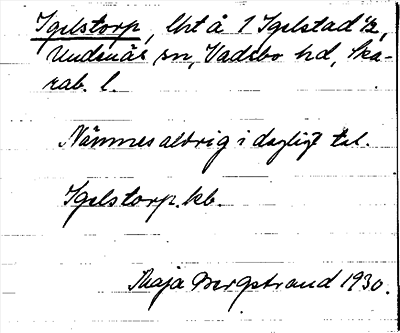 Igelstorp, lht å 1 Igelstad ½,
Undenäs sn, Vadsbo hd, Ska-
rab. l.
Nämnes aldrig i dagligt tal.
Igelstorp. kb.
Maja Bergstrand 1930.